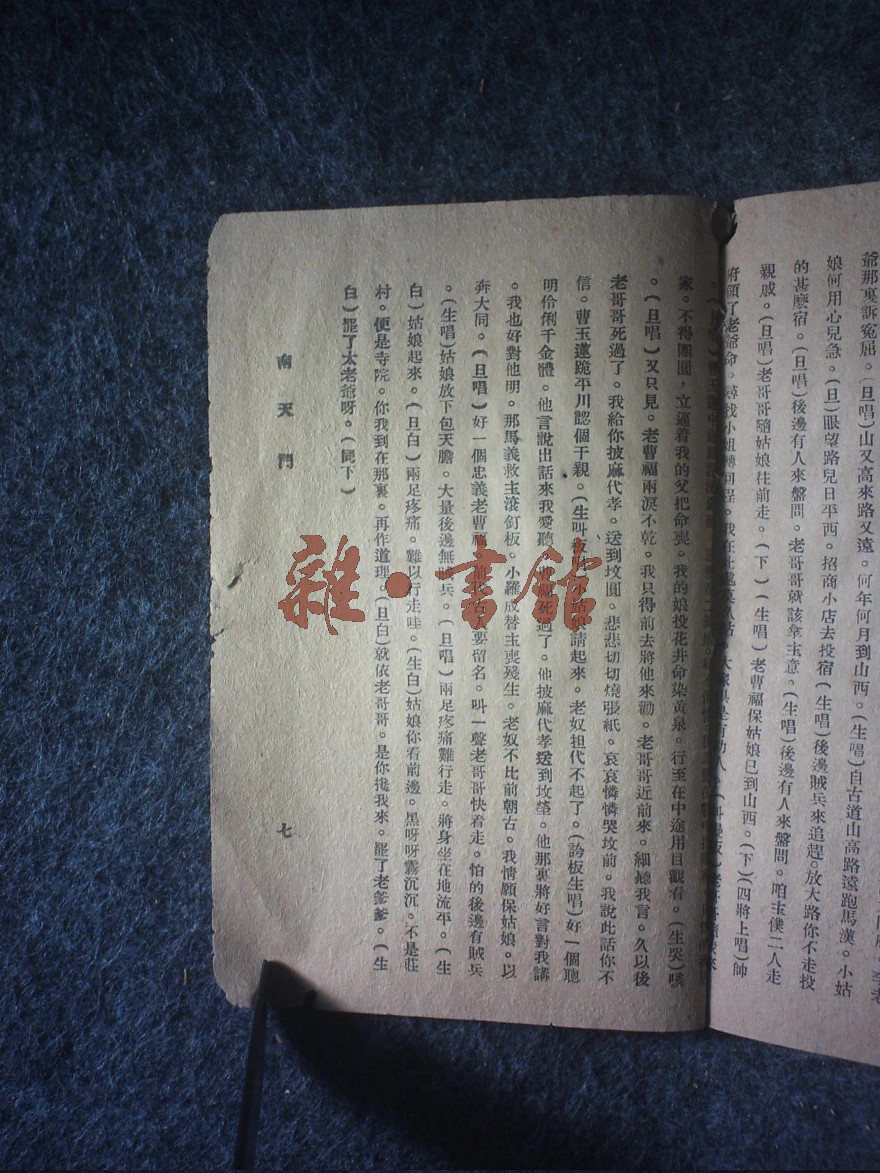 爺那裏訴寃屈。(旦唱)山又高來路又遠。何年何月到山西。(生唱)自古道山高路遠跑馬漢。小姑
娘何用心兒急。(旦)眼望路兒日平西。招商小店去投宿(生唱)後邊賊兵來追趕。放大路你不走投
的甚麽宿。(旦唱)後邊有人來盤問。老哥哥就該拿主意。(生唱)後邊有人來盤問。咱主僕二人走
親戚。(旦唱)老哥哥隨姑娘往前走。(下)(生唱)老曹福保姑娘已到山西。(下)(四將上唱)帥
府領了老爺命。尋找小姐轉回程。
家。不得團圓，立逼着我的父把命喪。我的娘投花井命染黃泉。行至在中途用目觀看。(生哭)咳
。(旦唱)又只見。老曹福兩淚不乾。我只得前去將他來勸。老哥哥近前來。細聽我言。久以後
老哥哥死過了。我給你披麻代孝。送到坟圓。悲悲切切燒張紙。哀哀憐憐哭坟前。我說此話你不
信。曹玉蓮跪平川認個干親。(生叫板)小姑娘請起來。老奴担代不起了。(詅板生唱)好一個聰
明伶俐千金體。他言說出話來我愛聽。死過了。他披麻代孝送到坟塋。他那裏將好言對我講
。我也好對他明。那馬義救主滾釘板。小羅成替主喪殘生。老奴不比前朝古。我情願保姑娘。以
奔大同。(旦唱)好一個忠義老曹福。前代古人要留名。叫一聲老哥哥快着走。怕的後邊有賊兵
。(生唱)姑娘放下包天膽。大量後邊無賊兵。(旦唱)兩足疼痛難行走。將身坐在地流平。(生
白)姑娘起來。(旦白)兩足疼痛。難以行走哇。(生白)姑娘你看前邊。黑呀呀霧沉沉。不是莊
村。便是寺院。你我到在那裏。再作道理。(旦白)就依老哥哥。是你搀我來。罷了老爹爹。(生
白)罷了太老爺呀。(同下)
南天門
七
雜·書館